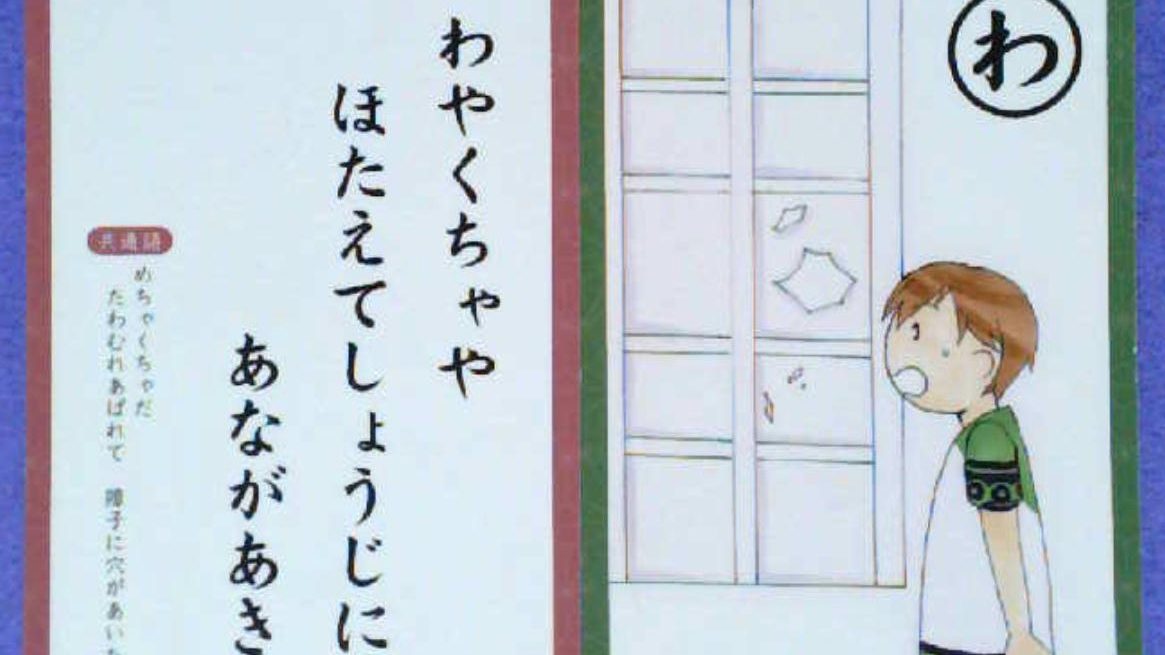 わやくちゃや
ほたえてしょうじに
あながあき
共通語
めちゃくちゃだ
たわむれあばれて 障子に穴があいた
わ